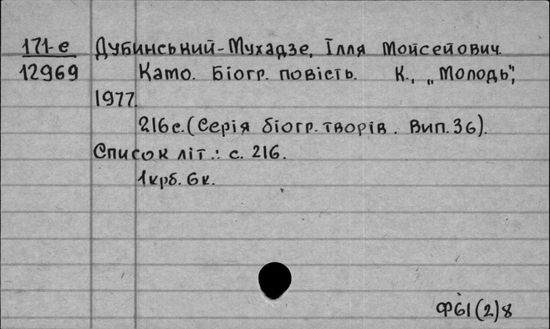 171-е Дубинський-Мухадзе, Ілля Мойсейович.
12969 Камо. Біогр. повість. К., „Молодь",
1977.
216с. (Серія біогр. творів. Вип. 36).
Список літ.: с. 216.
1крб. 6к.
Ф61(2)8